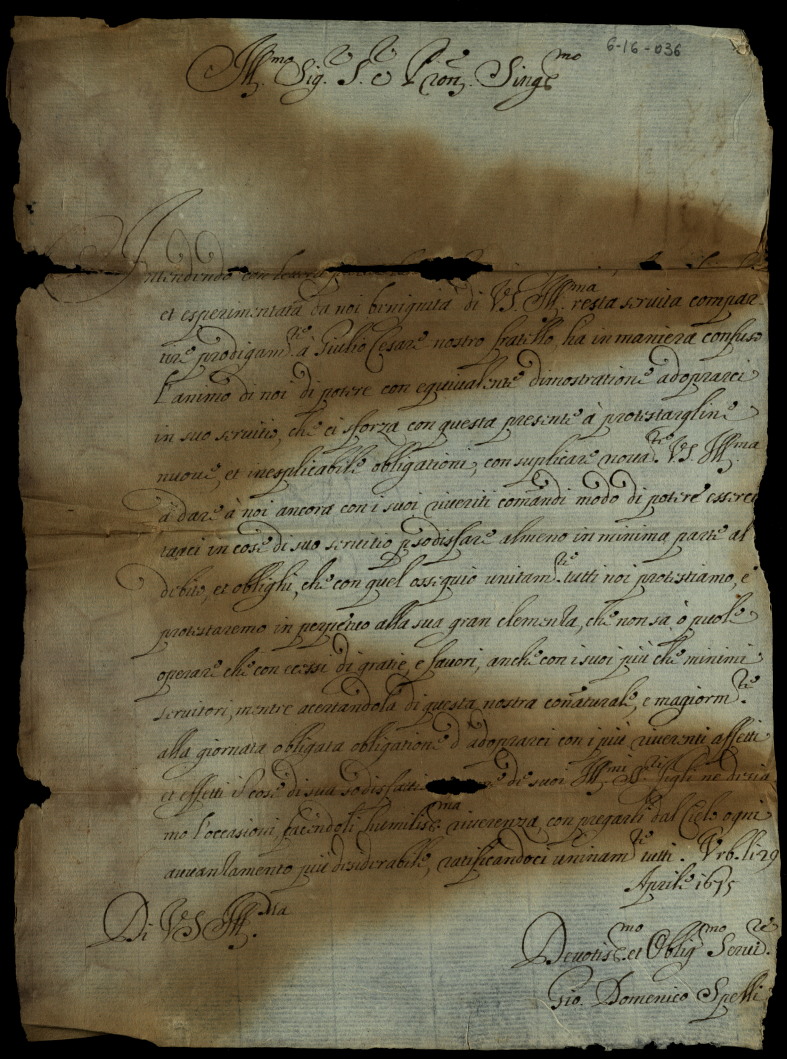 6-16-036
Ill.mo Sig.re S.re e Pron.e Sing.mo
Intendendo con
et esperimentata da noi benignità di V.S. Ill.ma resta servita compar
tire prodigam.te à Giulio Cesare nostro fratello, ha in maniera confuso
l'animo di noi di potere con equivalente dimostratione adoprarci
in suo servitio, che ci sforza con questa presente à protestargline
nuove, et inesplicabile obligationi, con suplicare V.S. Ill.ma
à dare à noi ancora con i suoi riveriti comandi modo di potere esserci
tarci in cose di suo servitio p sodisfare almeno in minima parte al
debito, et oblighi, che con quel ossequio unitam.te tutti noi protestiamo, e
protestaremo in perpetuo alla sua gran clemenza, che non sà, ò puole
operare che con ecessi di gratie, e favori, anche con i suoi più che minimi
servitori, mentre acertandola di questa nostra conaturale, e magiorm.te
alla giornata obligata obligatione d'adoprarci con i più riverenti affetti
et effetti cose di sua sodisfatti ne de suoi Ill.mi figli ne desia
mo l'occasioni, facendoli humiliss.ma riverenza, con pregarli dal Cielo ogni
avvanzamento più desiderabile, ratificandoci unitam.te tutti. Urb. li 29
Aprile 1675
Di V.S. Ill.ma
Devotiss.mo et Oblig.mo Servi.re
Gio. Domenico Spelli